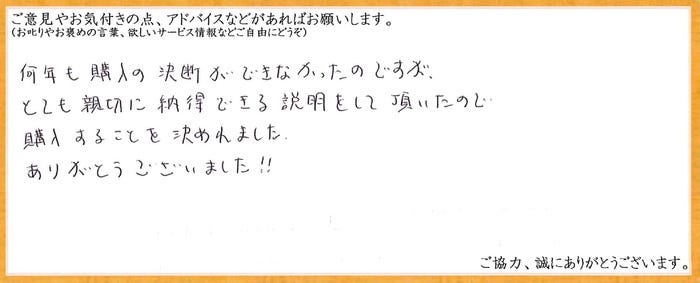 ご意見やお気付きの点、アドバイスなどがあればお願いします。
(お叱りやお褒めの言葉、欲しいサービス情報などご自由にどうぞ)
何年も購入の決断ができなかったのですが、
とても親切に納得できる説明をして頂いたので
購入することを決めれました.
ありがとうございました!!
ご協力、誠にありがとうございます。